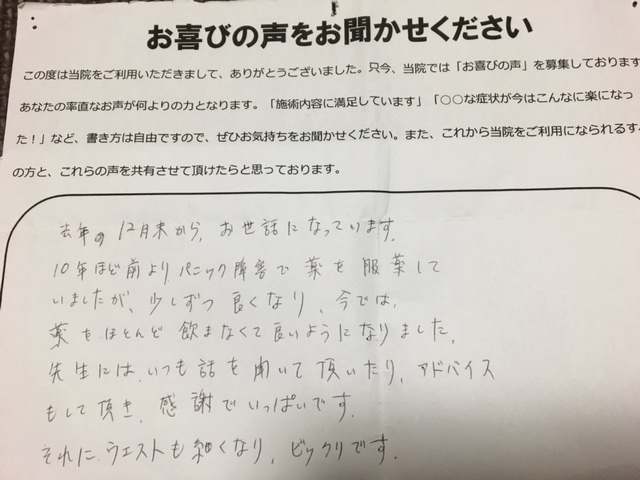 お喜びの声をお聞かせください
この度は当院をご利用いただきまして、ありがとうございました。只今、当院では「お喜びの声」を募集しております
あなたの率直なお声が何よりの力となります。「施術内容に満足しています」「○○な症状が今はこんなに楽になっ
た!」など、書き方は自由ですので、ぜひお気持ちをお聞かせください。また、これから当院をご利用になられるす
の方と、これらの声を共有させて頂けたらと思っております。
去年の12月末から、お世話になっています。
10年ほど前より、パニック障害で薬を服薬して
いましたが、少しずつ良くなり、今では、
薬をほとんど飲まなくて良いようになりました。
先生には、いつも話を聞いて頂いたり、アドバイス
もして頂き、感謝でいっぱいです。
それに、ウエストも細くなり、ビックリです。